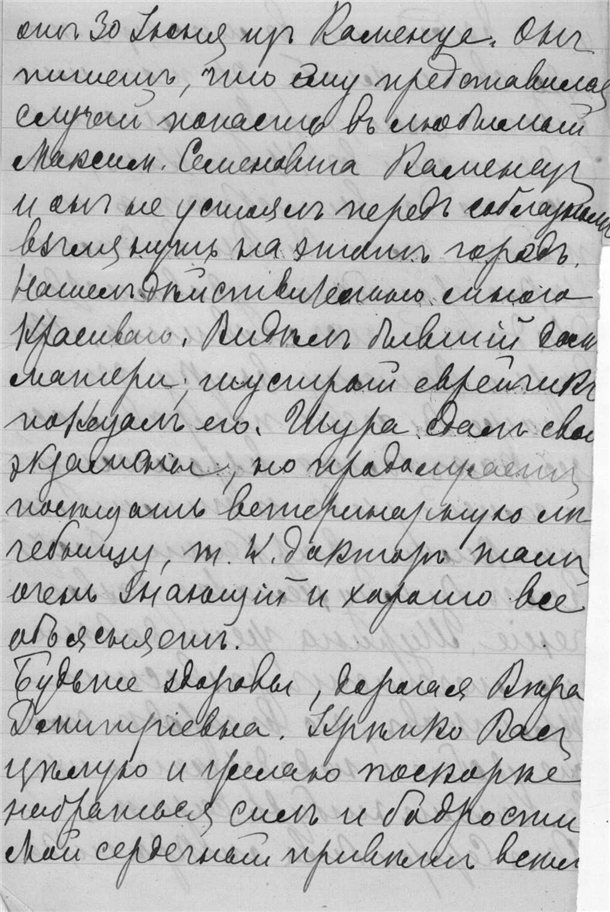 отъ 30 Іюня изъ Каменца. Онъ
пишетъ, что ему представился
случай попасть въ любимый
Максим. Семеновича Каменецъ
и онъ не устоялъ передъ соблазномъ
взглянуть на этотъ городъ.
Нашелъ дѣйствительно много
красиваго. Видѣлъ бывшій домъ
матери; шустрый еврейчикъ
показалъ его. Шура сдалъ свои
экзамены, но продолжаетъ
посѣщать ветеринарную лѣ
чебницу, т. к. докторъ тамъ
очень знающій и хорошо все
объясняетъ.
Будьте здоровы, дорогая Вѣра
Дмитріевна. Крѣпко Васъ
цѣлую и желаю поскорѣе
набраться силъ и бодрости
Мой сердечный привѣтъ всѣмъ